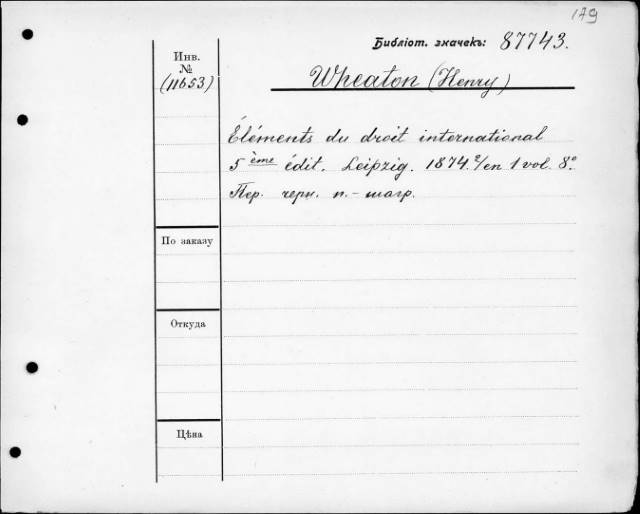 179
Библіот. значекъ: 87743.
Инв.
№
(11653)
Wheaton (Henry)
Éléments du droit international
5 ème édit. Leipzig. 1874. 2/en 1 vol. 8º.
Пер. черн. п.-шагр.
По заказу
Откуда
Цѣна